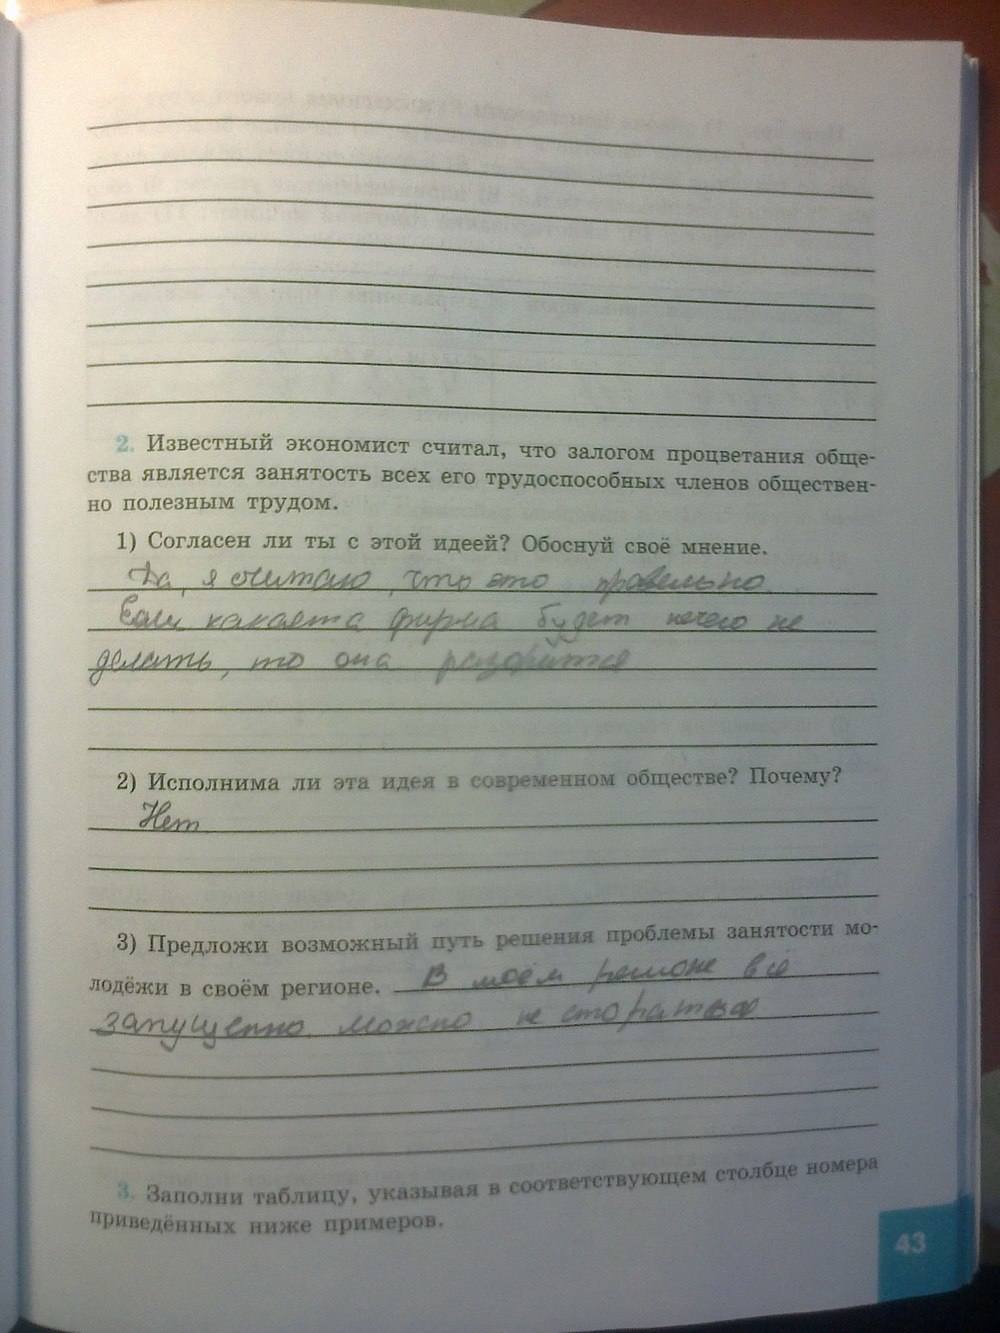 2. Известный экономист считал, что залогом процветания обще-
ства является занятость всех его трудоспособных членов обществен-
но полезным трудом.
1) Согласен ли ты с этой идеей? Обоснуй своё мнение.
Да, я считаю, что это правельно.
Если какаята фирма будет нечего не
делать, то она разорится
2) Исполнима ли эта идея в современном обществе? Почему?
Нет
3) Предложи возможный путь решения проблемы занятости мо-
лодёжи в своём регионе. В моём регионе всё
запущенно. можно не старатья
3. Заполни таблицу, указывая в соответствующем столбце номера
приведённых ниже примеров.
43